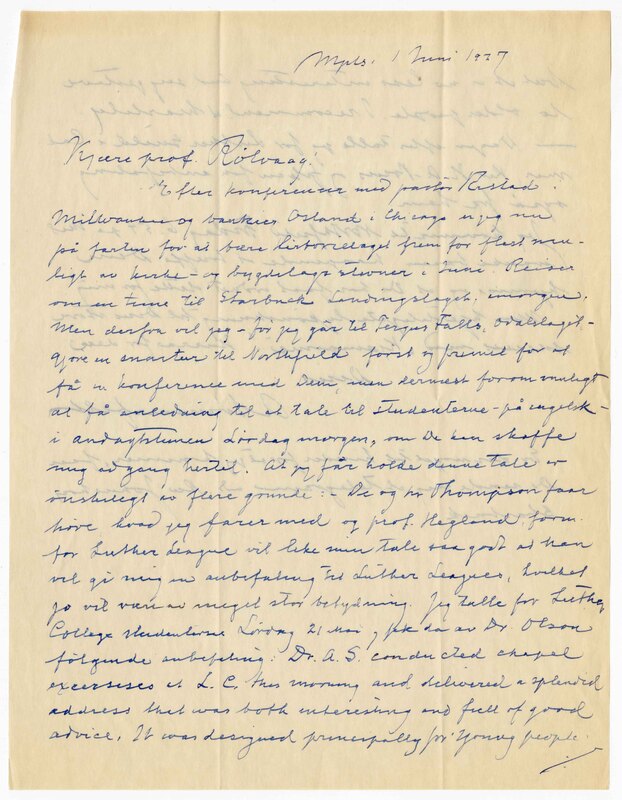 Mpls. 1 Juni 1927
Kjære prof. Rölvaag!
Efter konferencer med pastor Ristad i
Milwaukee og bankier Osland i Chicago er jeg nu
på farten for at bære historielaget frem for flest mu-
ligt av kirke- og bygdelags stevner i Juni. Reiser
om en time til Starbuck Landingslaget, imorgen.
Men derfra vil jeg - för jeg går til Fergus Falls, Odalslaget -
gjöre en snartur til Northfield först og fremst for at
få en konference med Dem, men dernæst forom muligt
at få anledning til at tale til studenterne - på engelsk -
i andagtstimen Lördag morgen, om De kan skaffe
mig adgang hertil. At jeg får holde denne tale er
önskeligt av flere grunde: - De og hr Thompson faar
höre hvad jeg farer med og prof. Hegland, form.
for Luther League vil like min tale saa godt at han
vil gi mig en anbefaling til Luther Leagues, hvilket
jo vil være av meget stor betydning. Jeg talte for Luther
College studenterne Lördag 21 Mai, fik da av Dr. Olson
fölgende anbefaling: Dr. A. S. conducted chapel
excersises at L. C. this morning and delivered a splendid
address that was both interesting and full of good
advice. It was designed principally for young people